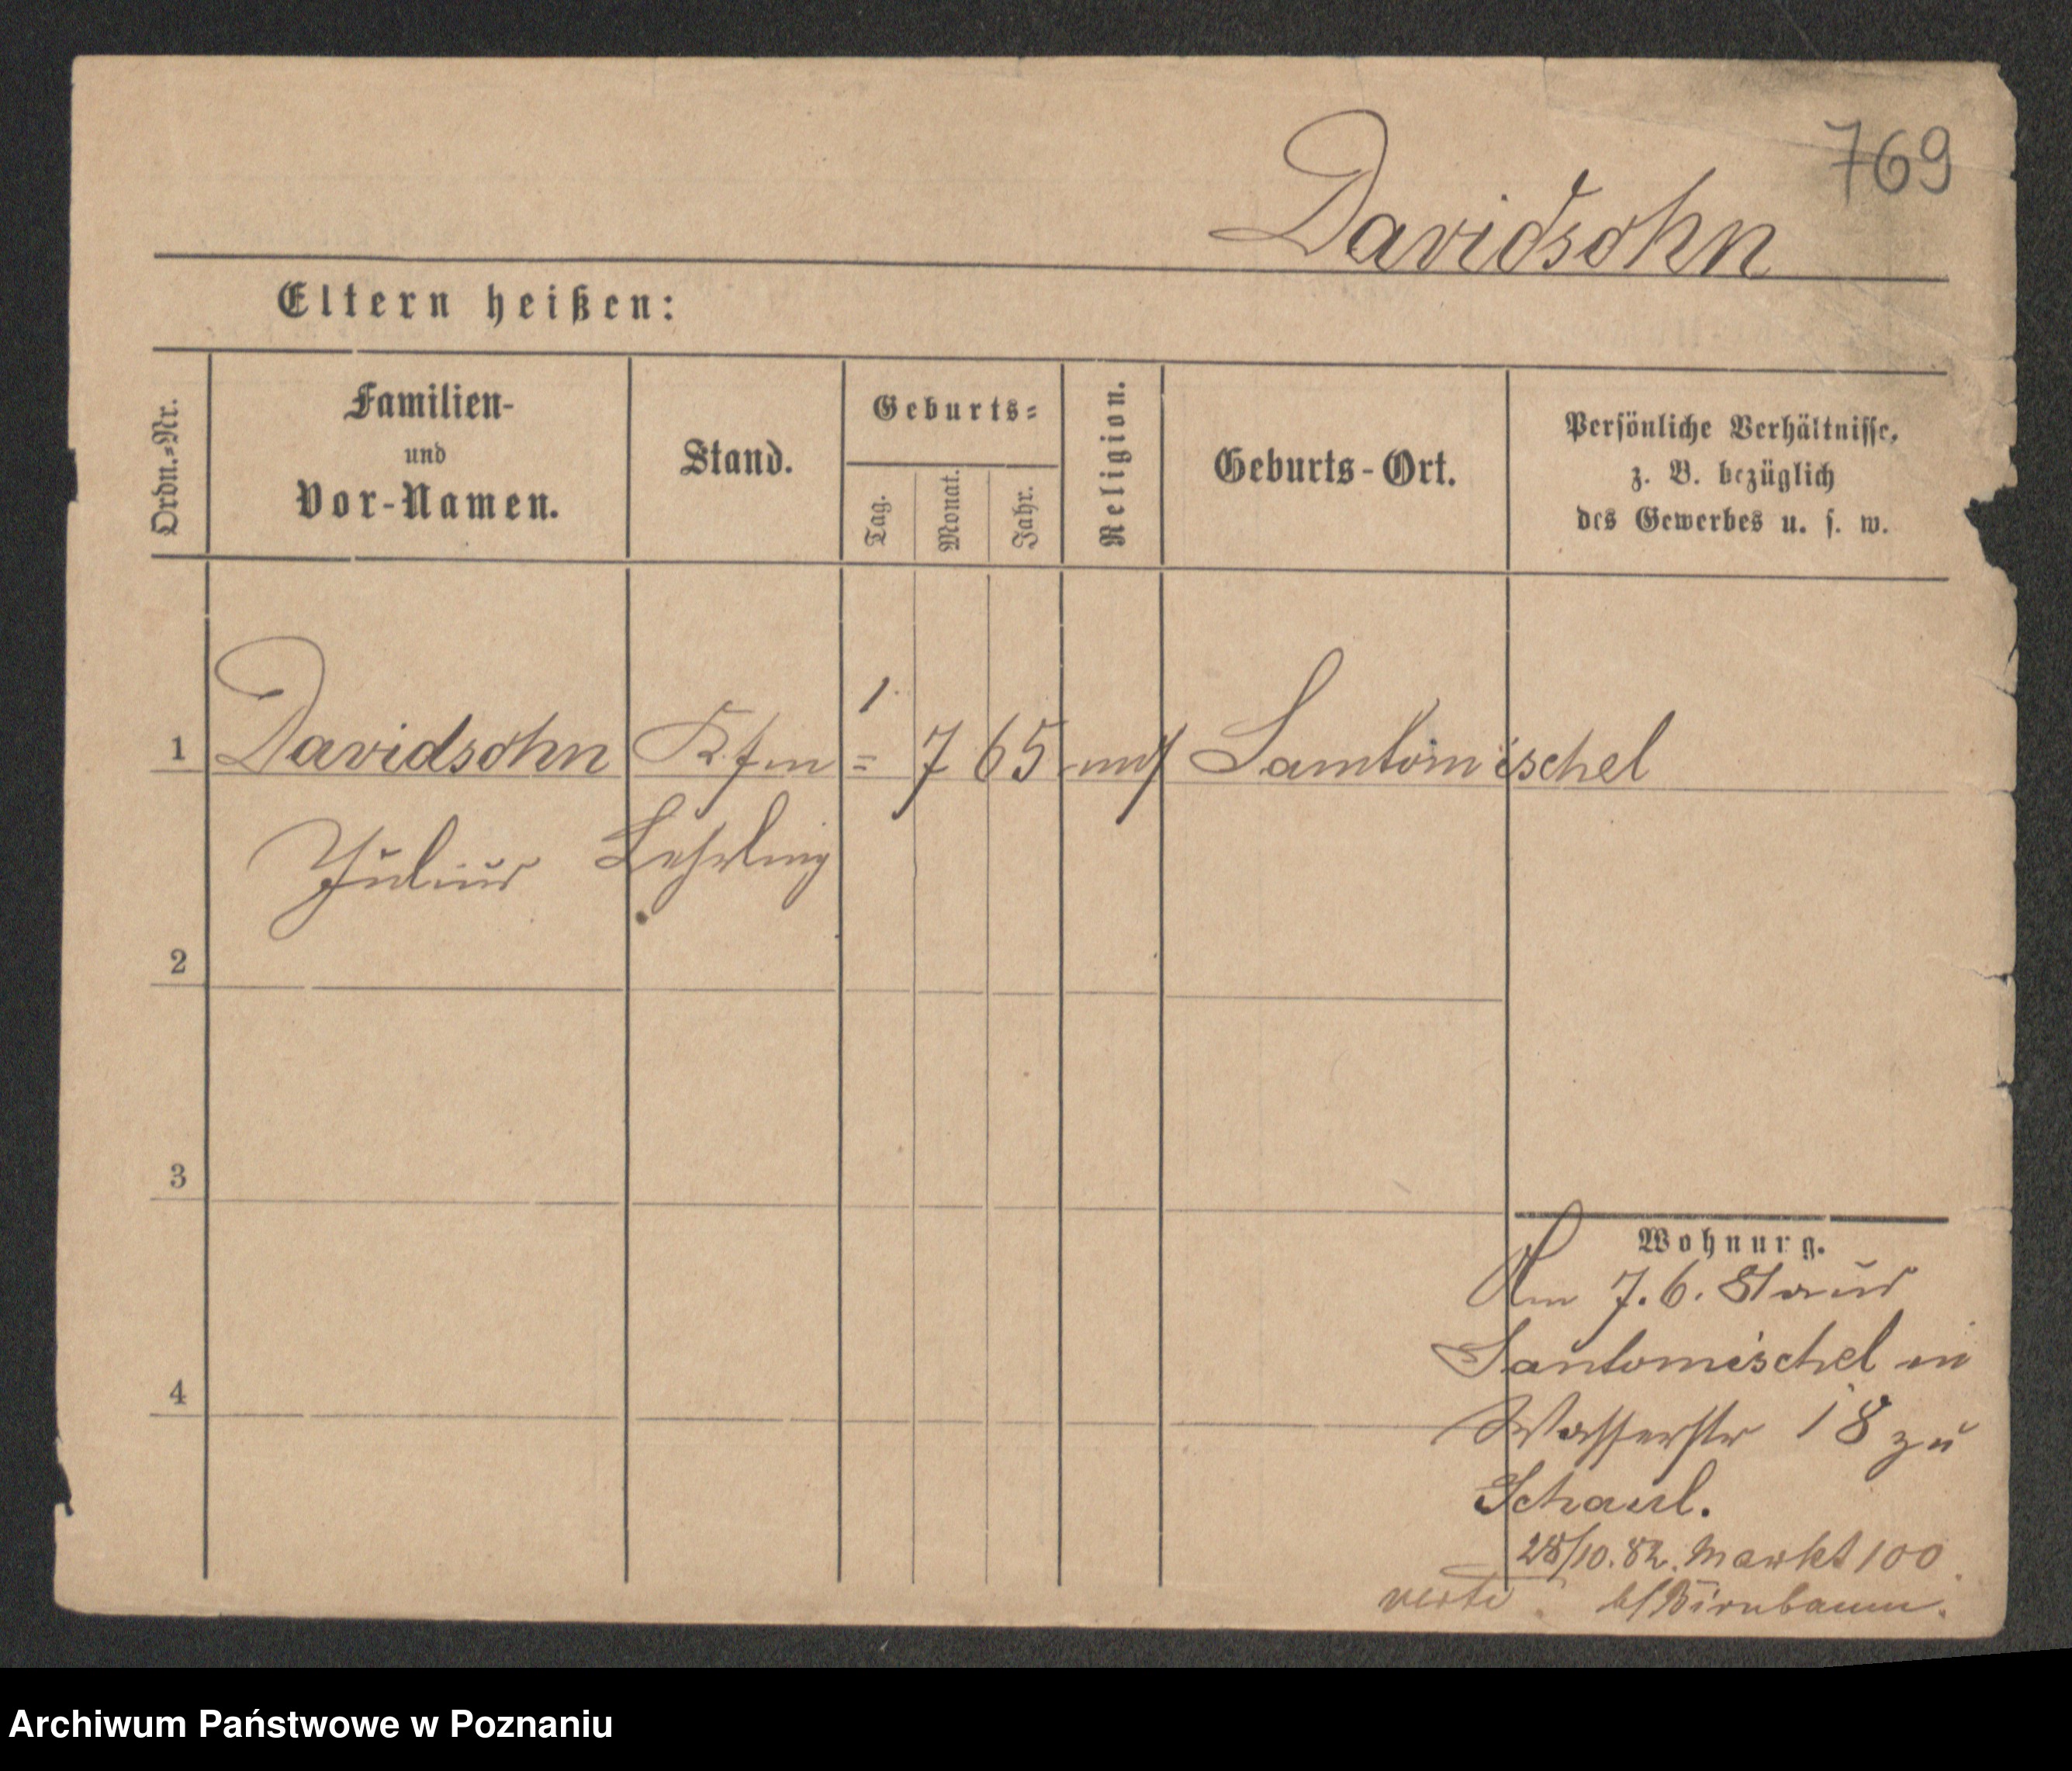 769
Davidsohn
Eltern heißen:
Ordn.=Nr.
Familien-
und
Vor-Namen.
Stand.
Geburts=
Tag.
Monat.
Jahr.
Religion.
Geburts-Ort.
Persönliche Verhältnisse,
z. B. bezüglich
des Gewerbes u. s. w.
1 Davidsohn Kfm= 1 7 65 mos Santomischel
Julius Lehrling
2
3
4
Wohnung.
Am 7.6. 81 aus
Santomischel in
Wasserstr 18 zu
Schaul.
28/10.82. Markt 100
verte b/Birnbaum.
Archiwum Państwowe w Poznaniu